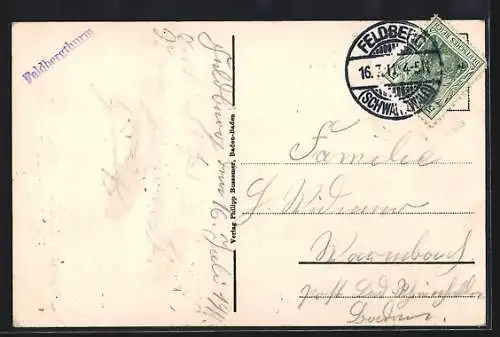 Feldbergthurm
Feldberg den 16. Juli 1911.
Verlag Philipp Bussemer, Baden-Baden
FELDBERG
16.7.11. 4-5N
(SCHWARZWALD)
Familie
Widemer
Warmbach
post Bad Rheinfelden
Baden